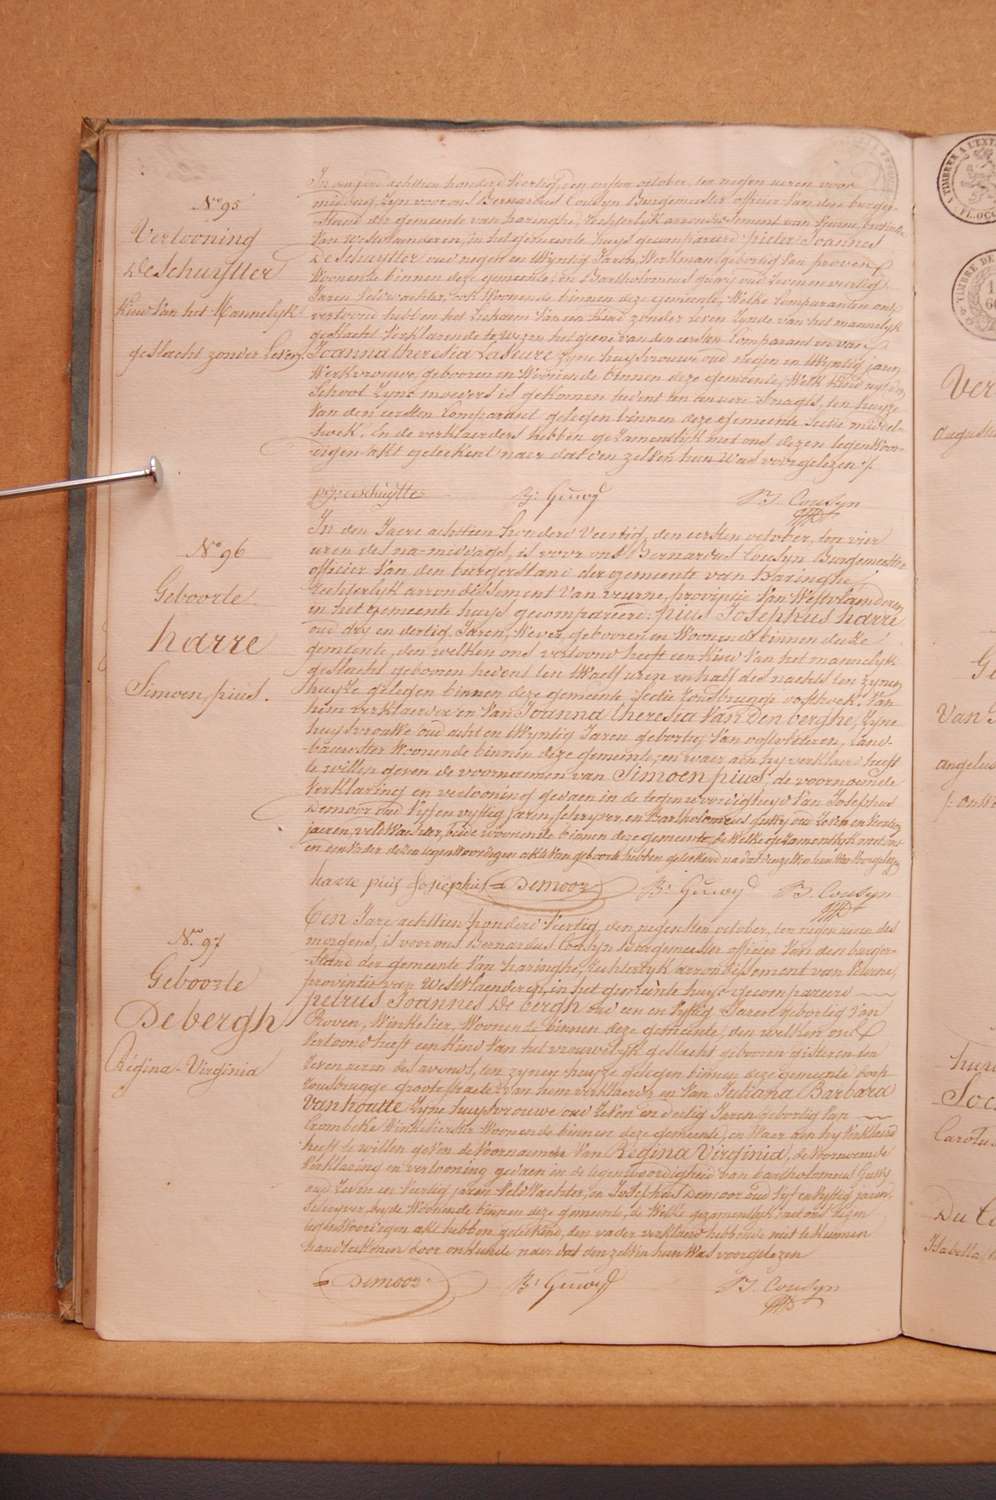 No 95
Vertooning
Deschuytter
Kind van het Mannelyk
geslacht zonder Leven
In den jaere achttien honderd Veertig, den eersten october, ten negen uren voor
middag zyn voor ons Bernardus Cousyn Burgemeester officier van den burger-
stand der gemeente van haringhe, Rechterlyk arrondissement van veurne, provintie
van Westvlaenderen, in het gemeente huys gecompareerd pieter Joannes
Deschuytter oud negen en twyntig Jaren, Werkman, gebortig van proven
Woonende binnen deze gemeente, en Bartholomeus guwy oud zeven en veertig
Jaren veldwachter, ook Woonende binnen deze gemeente, Welke Comparanten ons
vertoond hebben het lichaem van een kind zonder Leven zynde van het mannelyk
geslacht verklaerende te wezen het gene van den eersten Comparant en van
Joanna theresia Laseure zyne huysvrouwe, oud negen en twyntig jaren,
Werkvrouwe, gebooren en Woonende binnen deze gemeente, Welk kind uyt den
schoot zyns moeders is gekomen hevent ten an uere s'nagts, ten huyze
van den eersten Comparant gelegen binnen deze gemeente sectie middel-
hoek. En de verklaerders hebben gezamentlyk met ons dezen tegenwoor-
digen akt geteekent naer dat den zelven hun Was voorgelezen /.
p j deschuytter B: Guwy B. Cousyn
No 96
Geboorte
harre
Simoen, pius.
In den Jaere achttien honderd Veertig, den eersten october, ten vier
uren des na-middags, is voor ons Bernardus Cousyn Burgemeester
officier van den burgerstand der gemeente van haringhe
Rechterlyk arrondissement van veurne, provintie van Westvlaenderen,
in het gemeente huys gecompareerd: pius Josephus harre
oud dry en dertig Jaren, Wever, gebooren en Woonende binnen deeze
gemeente, den welken ons vertoond heeft een kind van het mannelyk
geslacht gebooren hevent ten twaelf uren en half des nachts ten zynen
huyze gelegen binnen deze gemeente, sectie Rousbrugge oosthoek, van
hem verklaerder en van Joanna theresia Van den berghe, zyne
huysvrouwe oud acht en twyntig Jaren gebortig van oostvleteren, Land-
bauwester Woonende binnen deze gemeente, en waer aen hy verklaert heeft
te willen geven de voornaemen van Simoen, pius, de voornoemde
verklaring en vertooning gedaen in de tegenwoordigheyd van Josephus
Demoor, oud vyf en vyftig jaren, schryver, en Bartholomeus guwy oud zeven en veertig
jaeren, veldwachter, beide woonende binnen deze gemeente, de Welke gezamentlyk met ons
en den Vader dezen tegenwoordigen akt van geboorte hebben geteekend na dat den zelven hun Was Voorgelezen
harre pius Josephus Demoor B. Guwy B. Cousyn
No 97
Geboorte
Debergh
Régina-Virginia
Den Jare achttien honderd Veertig, den negensten october, ten negen uren des
morgens, is voor ons Bernardus Cousyn Burgemeester officier van den burger-
stand der gemeente van haringhe, rechterlyk arrondissement van Veurne,
provintie van Westvlaenderen, in het gemeente huys gecompareerd
petrus Joannes De bergh oud een en vyftig Jaren gebortig van
Proven, Winkelier, Woonende binnen deze gemeente, den welken ons
vertoond heeft een kind van het vrouwelyk geslacht gebooren gisteren ten
zeven uren des avonds, ten zynen huyze gelegen binnen deze gemeente dorp
rousbrugge groote straete van hem verklaerder en van Juliana Barbara
Vanhoutte zyne huysvrouwe oud zeven en dertig Jaren gebortig van
Crombeke Winkelierster Woonende binnen deze gemeente, en Waer aen hy verklaerd
heeft te willen geven de voornaemen van Regina Virginia, de Voornoemde
Verklaering en vertooning gedaen in de tegenwoordigheid van bartholomeus Guwy
oud zeven en veertig jaren veldwachter, en Josephus Demoor oud vyf en vyftig jaren,
schryver, beyde Woonende binnen deze gemeente, de Welke gezamentlyk met ons dezen
tegenwoordigen akt hebben geteekend, den vader verklaerd hebbende niet te kunnen
handteekenen door onkunde naer dat den zelven hun Was voorgelezen
Demoor. B. Guwy B. Cousyn
Ver
augustu
G
Van
angelus
hure
Soc
Carolus
Du C
Isabella